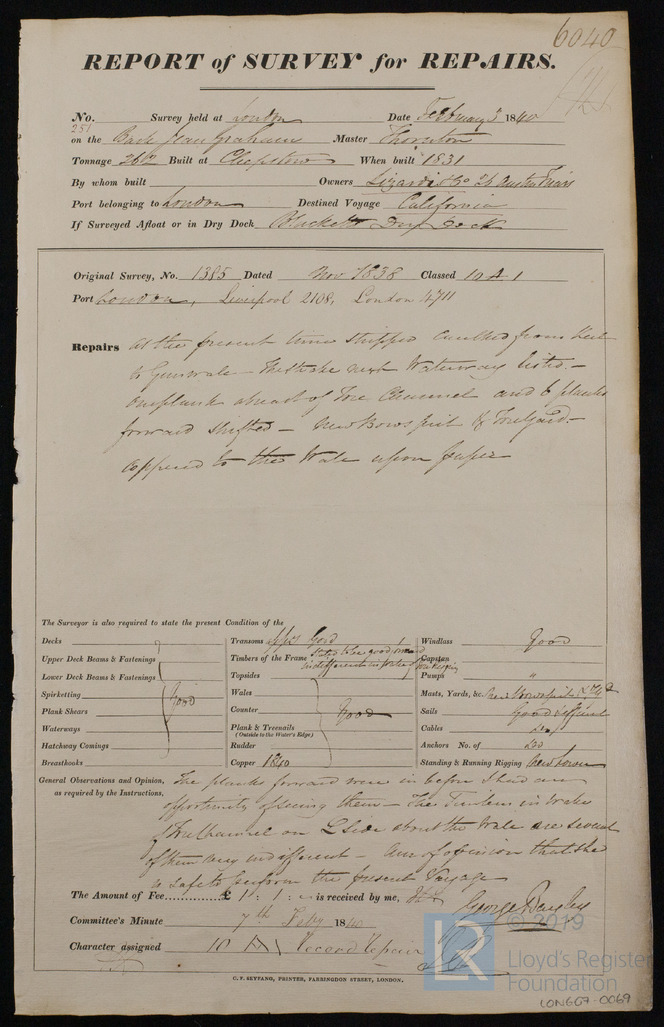 6040
REPORT of SURVEY for REPAIRS.
No. Survey held at London Date February 5 1840
251
on the Bark Jean Graham Master Thornton
Tonnage 262 Built at Chepstow When built 1831
By whom built Owners Lizardi & Co Austin Friars
Port belonging to London Destined Voyage California
If Surveyed Afloat or in Dry Dock Blacketts Dry Dock
Original Survey, No. 1385 Dated Nov 1838 Classed 10 A 1
Port London, Liverpool 2108, London 4711
Repairs At the present time stripped caulked from keel
to Gunwale - The strake next Waterway listed -
one plank ahead of Fore Channel and 6 planks
forward shifted - New Bowsprit & Foreyard -
coppered to the Wale upon paper
The Surveyor is also required to state the present Condition of the
Decks
Upper Deck Beams & Fastenings
Lower Deck Beams & Fastenings
Spirketting
Plank Shears Good
Waterways
Hatchway Comings
Breasthooks
Transoms Good
Timbers of the Frame stated to be good
indifferent in
Topsides
Wales
Counter Good
Plank & Treenails
(Outside to the Water's Edge)
Rudder
Copper 1840
Windlass Good
Capstan
Pumps "
Masts, Yards, &c New Bowsprit &
Sails Good & efficient
Cables do
Anchors No. of do
Standing & Running Rigging
General Observations and Opinion,
as required by the Instructions,
The planks forward were in before I had an
opportunity of seeing them - The Timbers in wake
of Fore Channel on L Side about the Wale are several
of them very indifferent - Am of opinion that she
is safe to perform the present Voyage
The Amount of Fee £ 1: 1: - is received by me,
George Bayley
Committee's Minute 7th Feby 1840
Character assigned 10 A Record Repair
C. F. SEYFANG, PRINTER, FARRINGDON STREET, LONDON.
© 2019
LR
Lloyd's Register
Foundation
LON607-0069